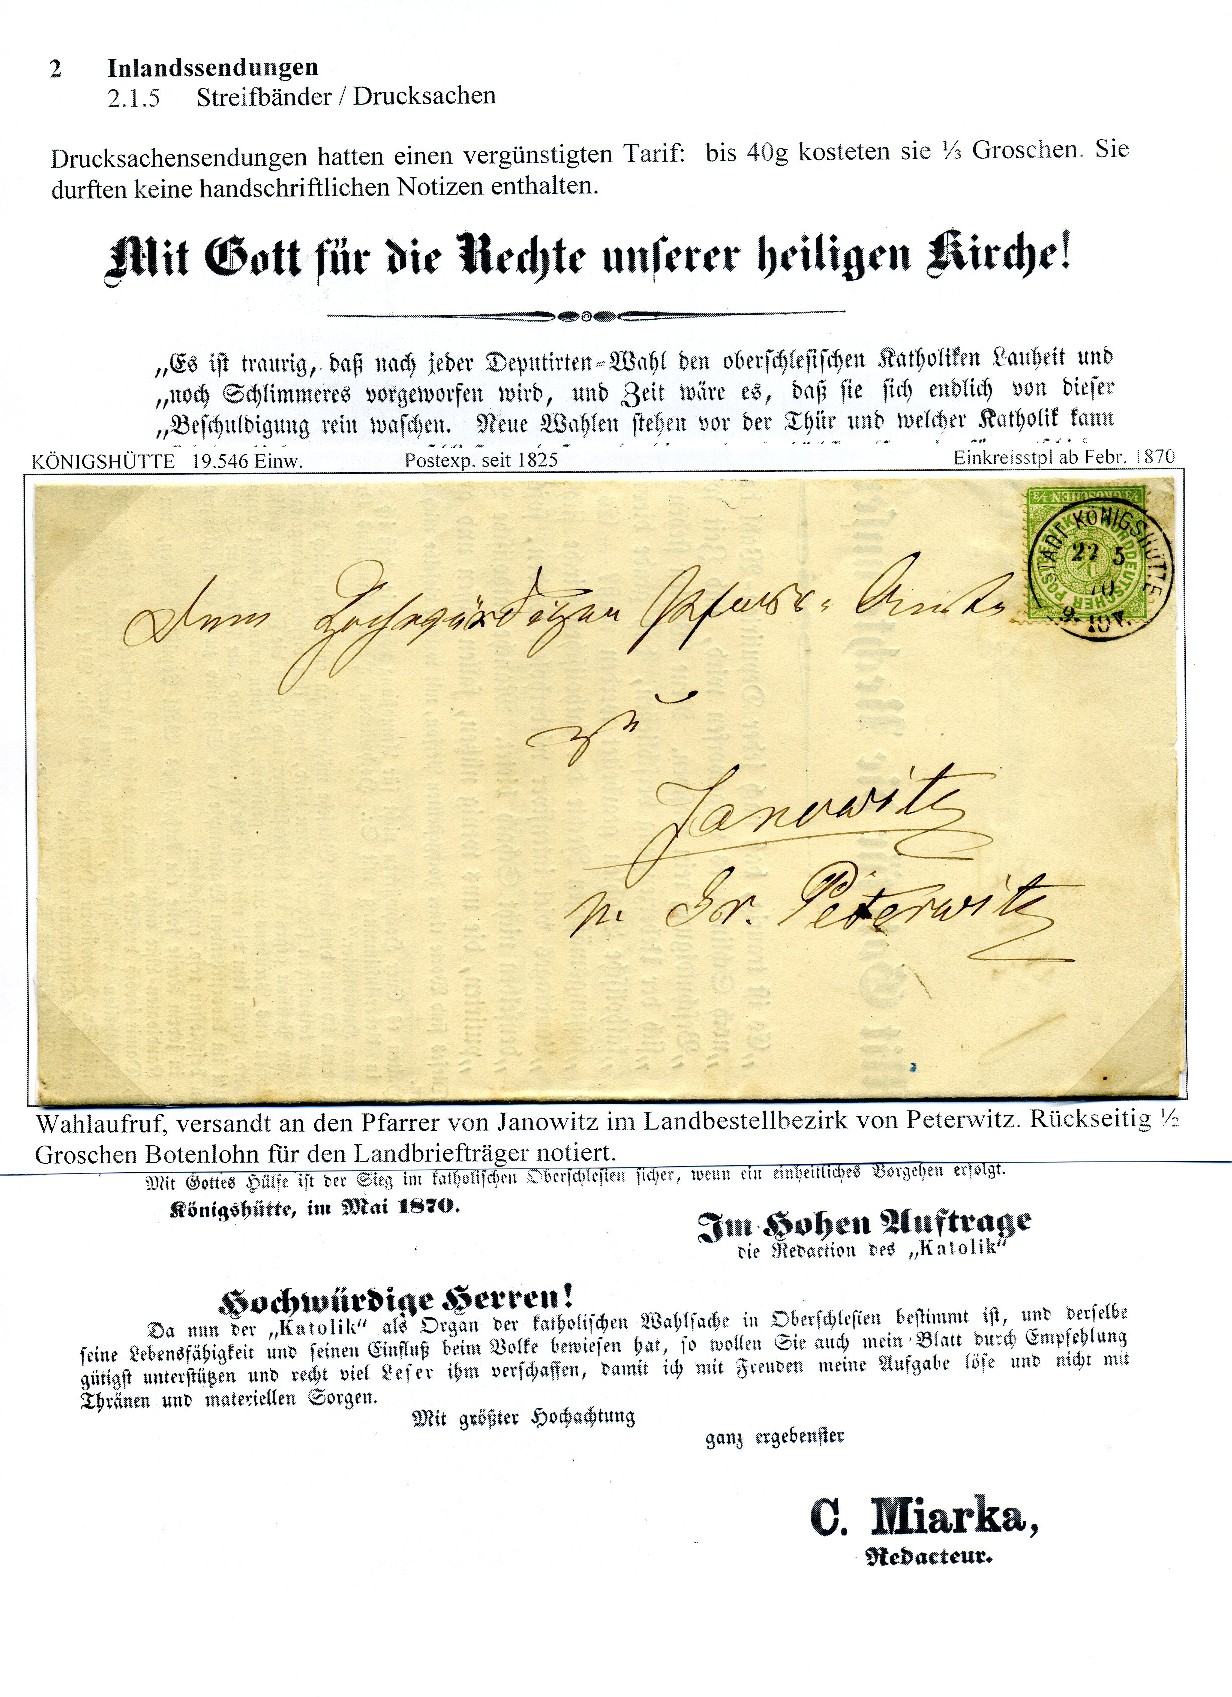 2 Inlandssendungen
2.1.5 Streifbänder / Drucksachen
Drucksachensendungen hatten einen vergünstigten Tarif: bis 40g kosteten sie ⅓ Groschen. Sie
durften keine handschriftlichen Notizen enthalten.
Mit Gott für die Rechte unserer heiligen Kirche!
„Es ist traurig, daß nach jeder Deputirten-Wahl den oberschlesischen Katholiken Lauheit und
„noch Schlimmeres vorgeworfen wird, und Zeit wäre es, daß sie sich endlich von dieser
„Beschuldigung rein waschen. Neue Wahlen stehen vor der Thür und welcher Katholik kann
KÖNIGSHÜTTE 19.546 Einw. Postexp. seit 1825 Einkreisstpl ab Febr. 1870
⅓ GROSCHEN ⅓
NORDDEUTSCHER POSTBEZIRK
STADT KÖNIGSHÜTTE
22 5
70
9-10 V.
Dem Hochwürdigen Pfarr-Amte
zu
Janowitz
p. Gr. Peterwitz
Wahlaufruf, versandt an den Pfarrer von Janowitz im Landbestellbezirk von Peterwitz. Rückseitig ½
Groschen Botenlohn für den Landbriefträger notiert.
Mit Gottes Hülfe ist der Sieg im katholischen Oberschlesien sicher, wenn ein einheitliches Vorgehen erfolgt.
Königshütte, im Mai 1870.
Im Hohen Auftrage
die Redaction des „Katolik“
Hochwürdige Herren!
Da nun der „Katolik“ als Organ der katholischen Wahlsache in Oberschlesien bestimmt ist, und derselbe
seine Lebensfähigkeit und seinen Einfluß beim Volke bewiesen hat, so wollen Sie auch mein Blatt durch Empfehlung
gütigst unterstützen und recht viel Leser ihm verschaffen, damit ich mit Freuden meine Aufgabe löse und nicht mit
Thränen und materiellen Sorgen.
Mit größter Hochachtung
ganz ergebenster
C. Miarka,
Redacteur.